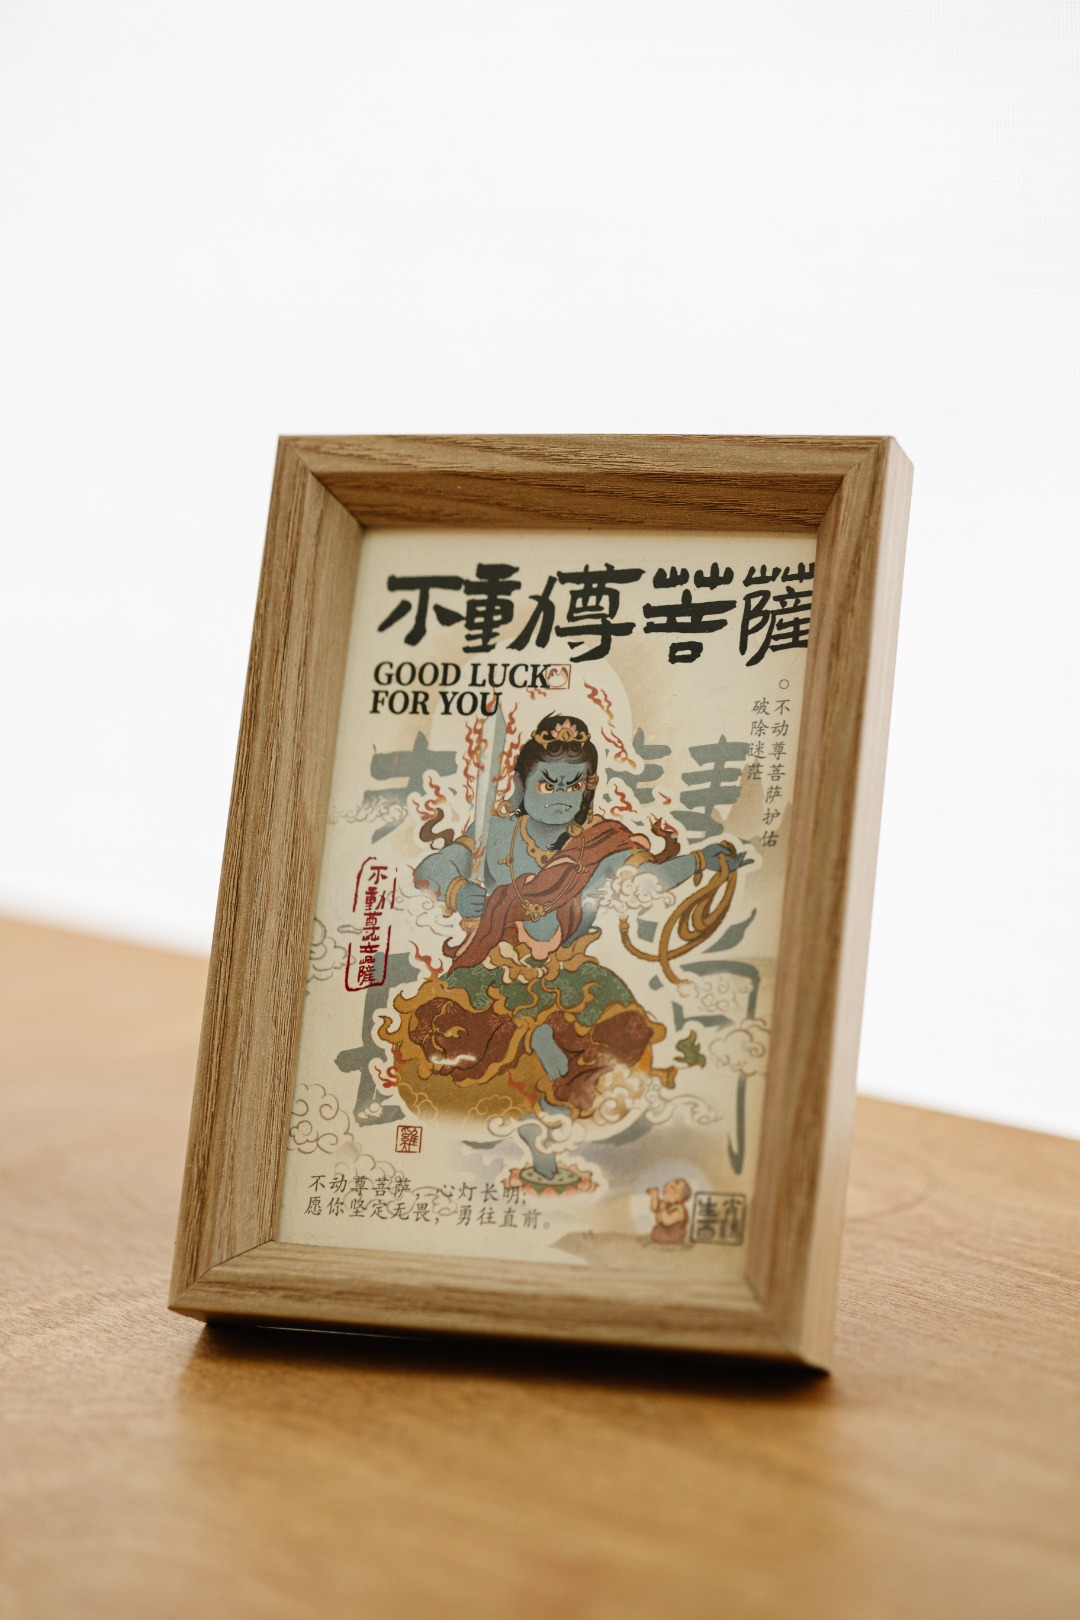 不動尊菩薩
GOOD LUCK
FOR YOU
不动尊菩萨护佑
破除迷茫
不動尊菩薩
雞
不动尊菩萨，心灯长明，
愿你坚定无畏，勇往直前。